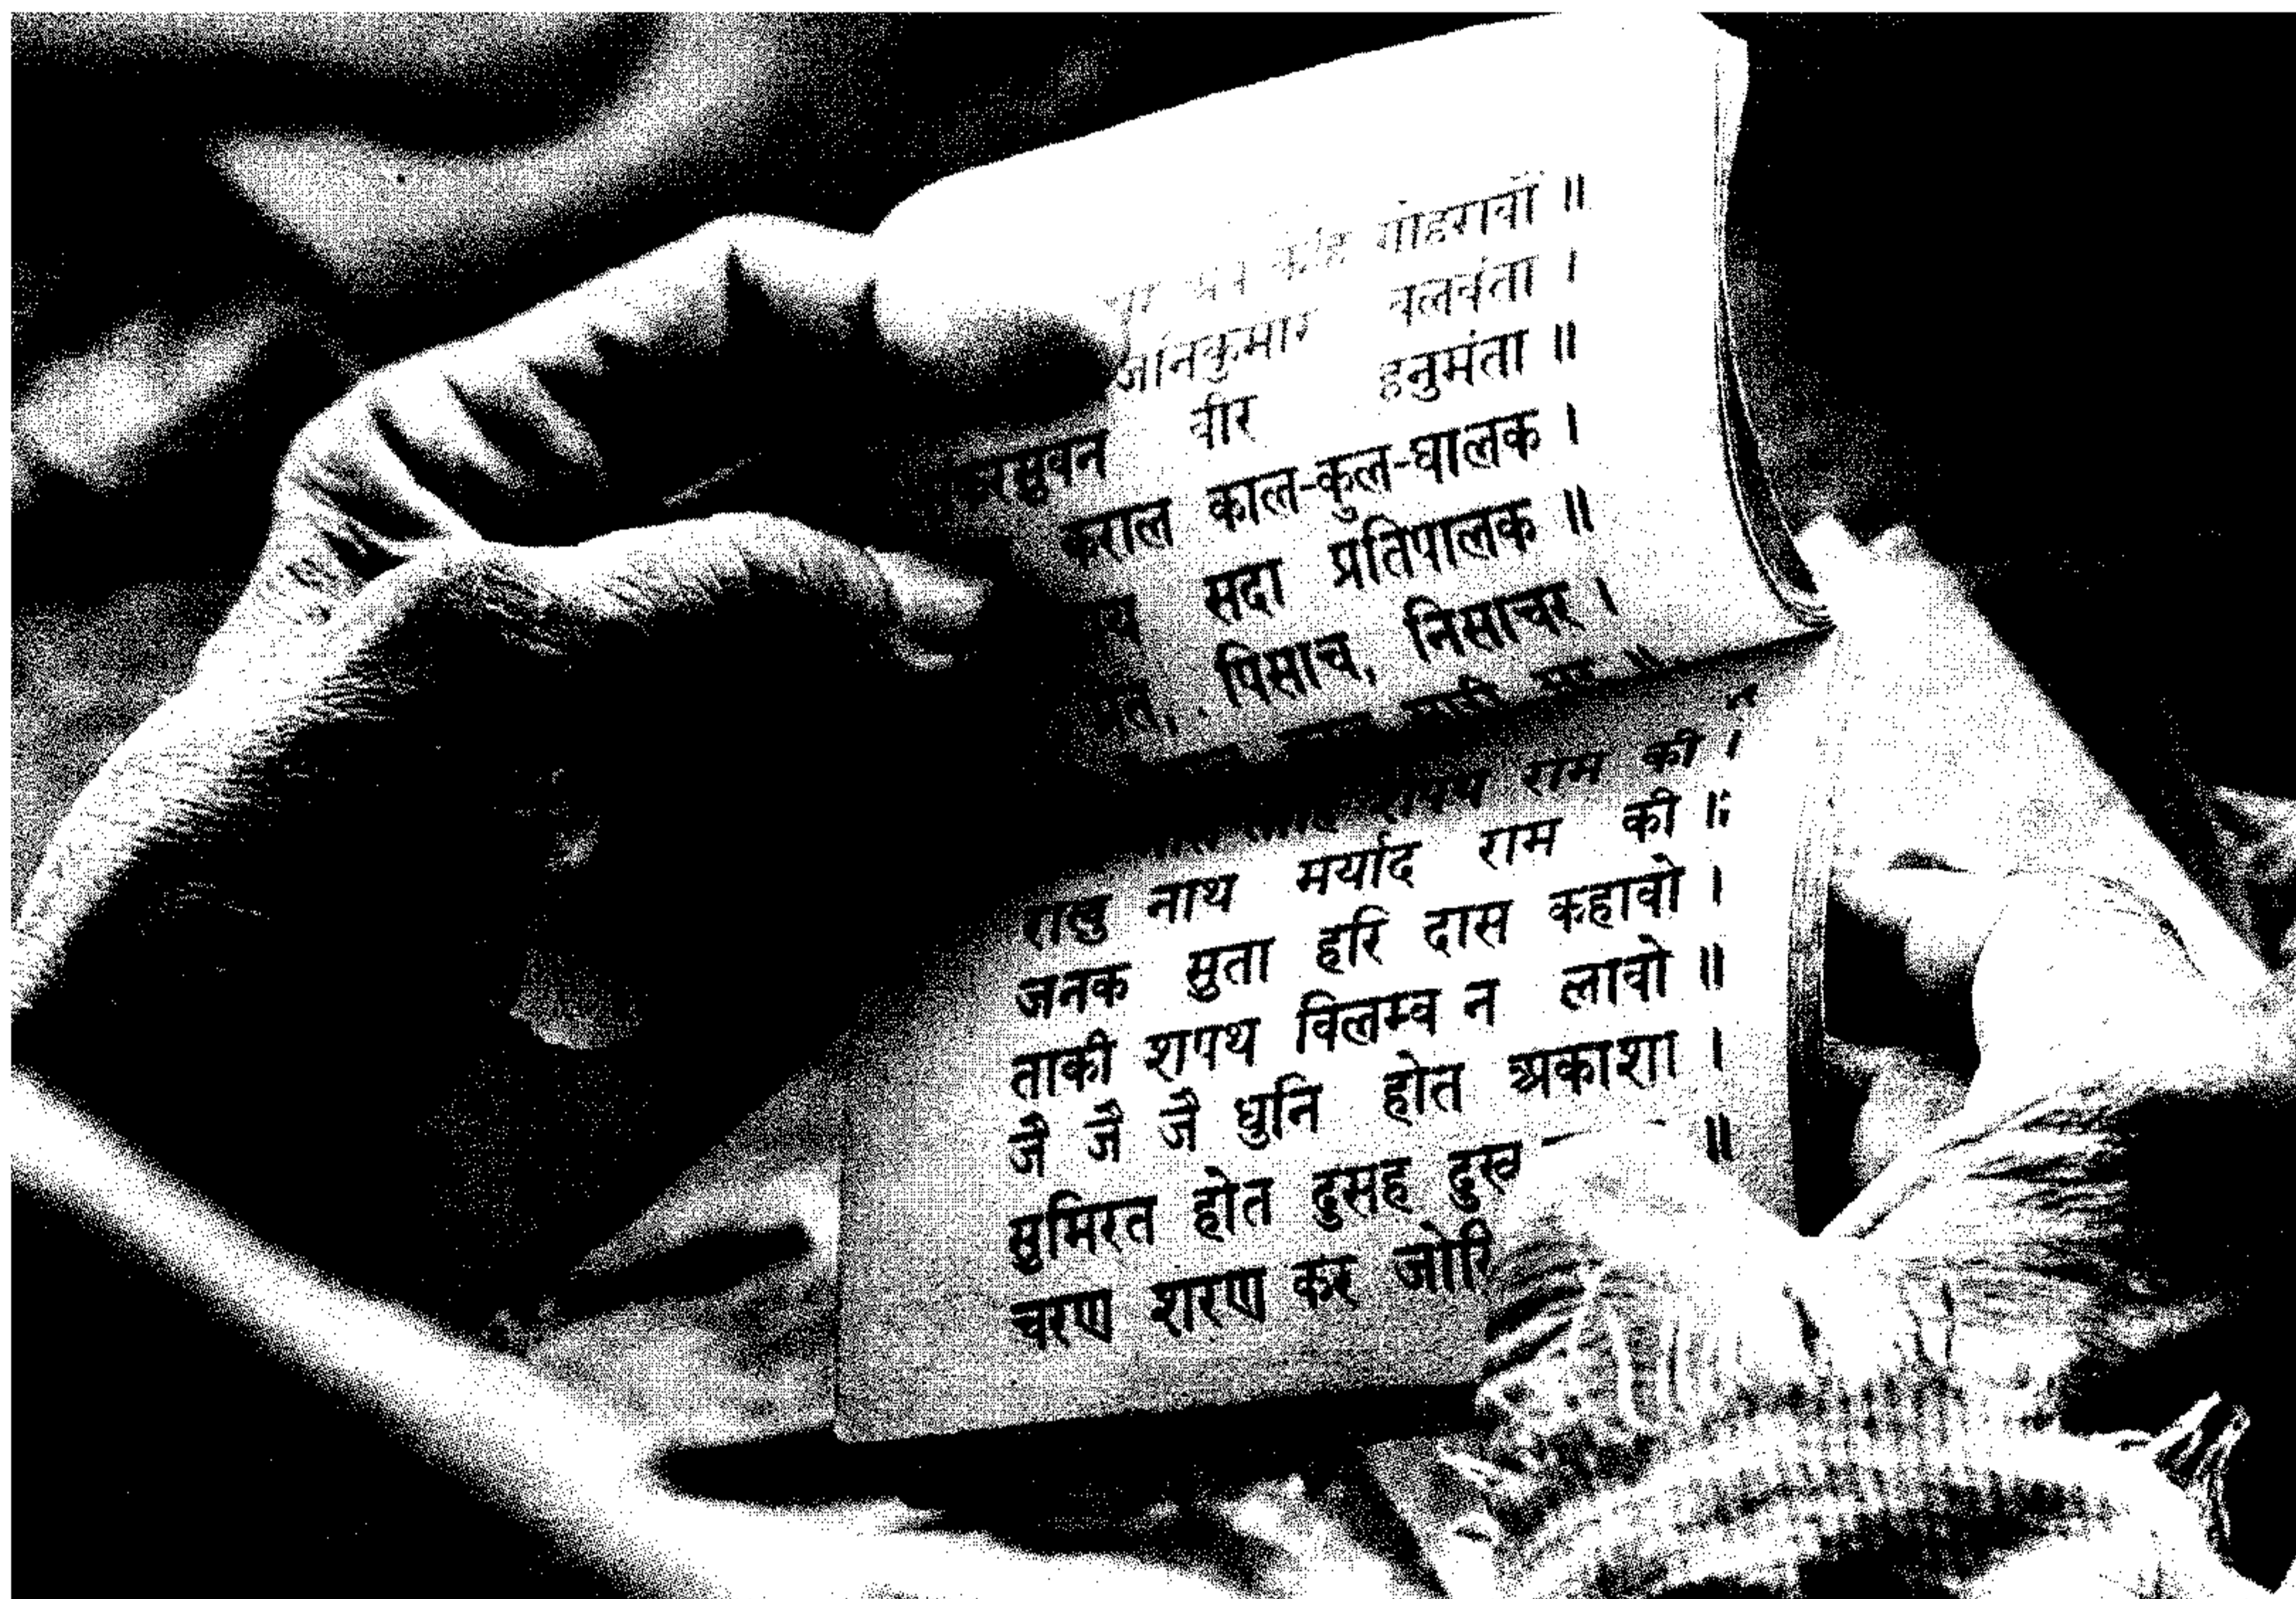 बलवंता ।
वीर हनुमंता ॥
कराल काल-कुल-घालक ।
सदा प्रतिपालक ॥
पिसाच, निसाचर ।
राम की ।
राखु नाथ मर्याद राम की ॥
जनक सुता हरि दास कहावो ।
ताकी शपथ विलम्व न लावो ॥
जै जै जै धुनि होत अकाशा ।
सुमिरत होत दुसह दुख ॥
चरण शरण कर जोरि